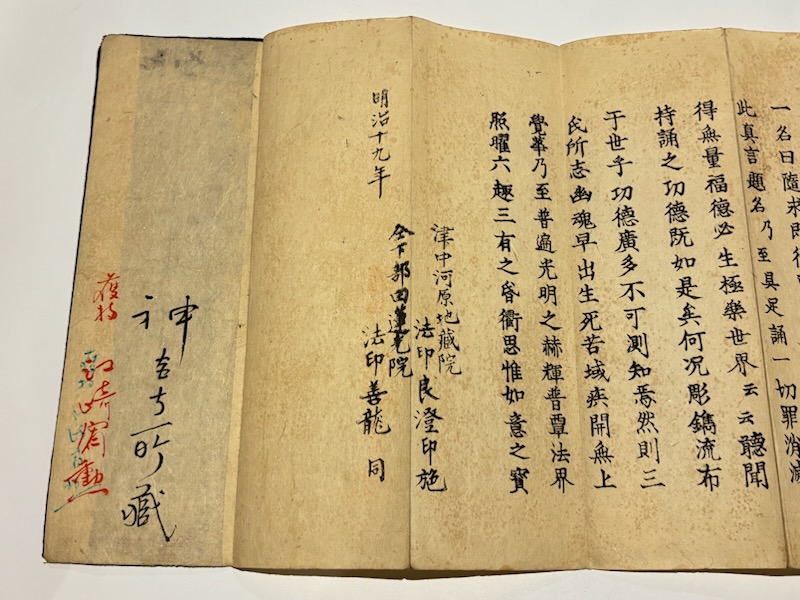 一名曰隨求即得
此真言題名乃至具足誦一切罪消滅
得無量福德必生極樂世界云云聽聞
持誦之功德既如是矣何况彫鐫流布
于世乎功德廣多不可測知焉然則三
氏所志幽魂早出生死苦域疾開無上
覺華乃至普遍光明之赫輝普覃法界
照曜六趣三有之昏衢思惟如意之寶
津中河原地藏院
法印良澄印施
仝下部田蓮光院
法印善龍 同
明治十九年
神寺所藏
護持